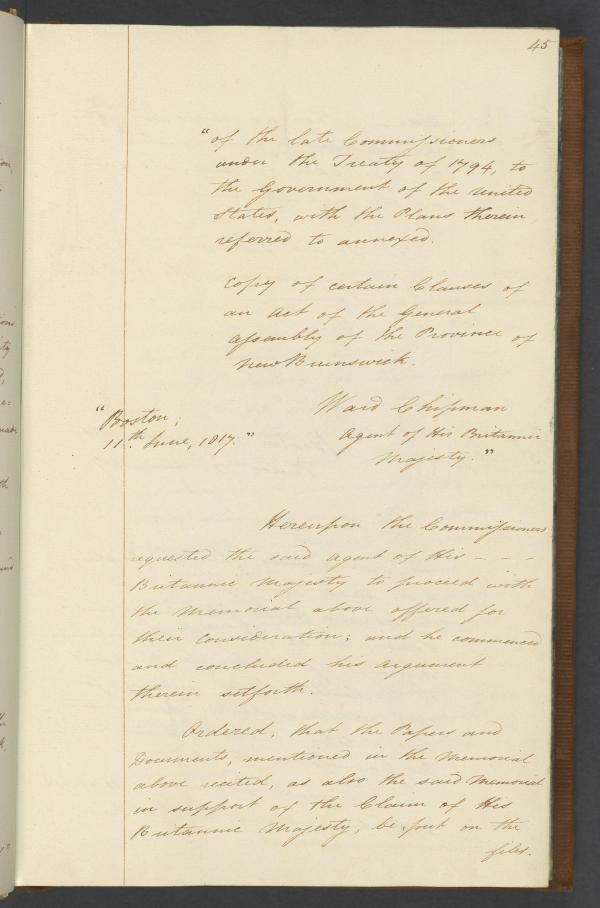 45
"of the late Commissioners
under the Treaty of 1794, to
the Government of the United
States, with the Plans therein
referred to annexed.
Copy of certain Clauses of
an Act of the General
Assembly of the Province of
New Brunswick.
Ward Chipman
Agent of His Britannic
Majesty."
"Boston;
11th June, 1817."
Hereupon the Commissioners
requested the said Agent of His - - -
Britannic Majesty to proceed with
the Memorial above offered for
their consideration; and he commenced
and concluded his argument
therein setforth.
Ordered, that the Papers and
Documents, mentioned in the Memorial
above recited, as also the said Memorial
in support of the Claim of His
Britannic Majesty, be put on the
files.